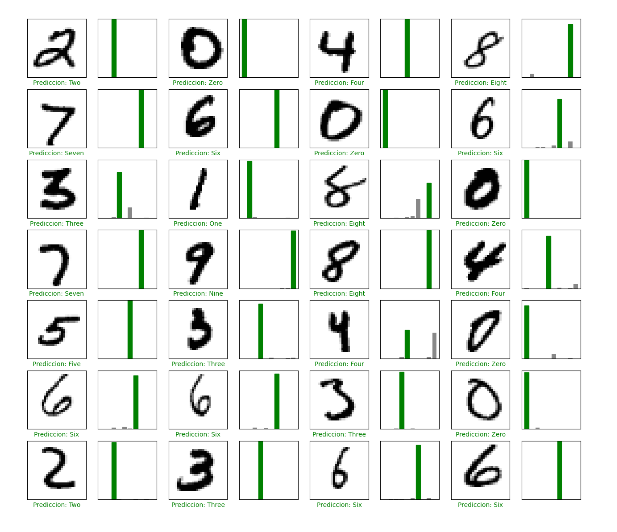 2 0 4 8
Prediccion: Two Prediccion: Zero Prediccion: Four Prediccion: Eight
7 6 0 6
Prediccion: Seven Prediccion: Six Prediccion: Zero Prediccion: Six
3 1 8 0
Prediccion: Three Prediccion: One Prediccion: Eight Prediccion: Zero
7 9 8 4
Prediccion: Seven Prediccion: Nine Prediccion: Eight Prediccion: Four
5 3 4 0
Prediccion: Five Prediccion: Three Prediccion: Four Prediccion: Zero
6 6 3 0
Prediccion: Six Prediccion: Six Prediccion: Three Prediccion: Zero
2 3 6 6
Prediccion: Two Prediccion: Three Prediccion: Six Prediccion: Six